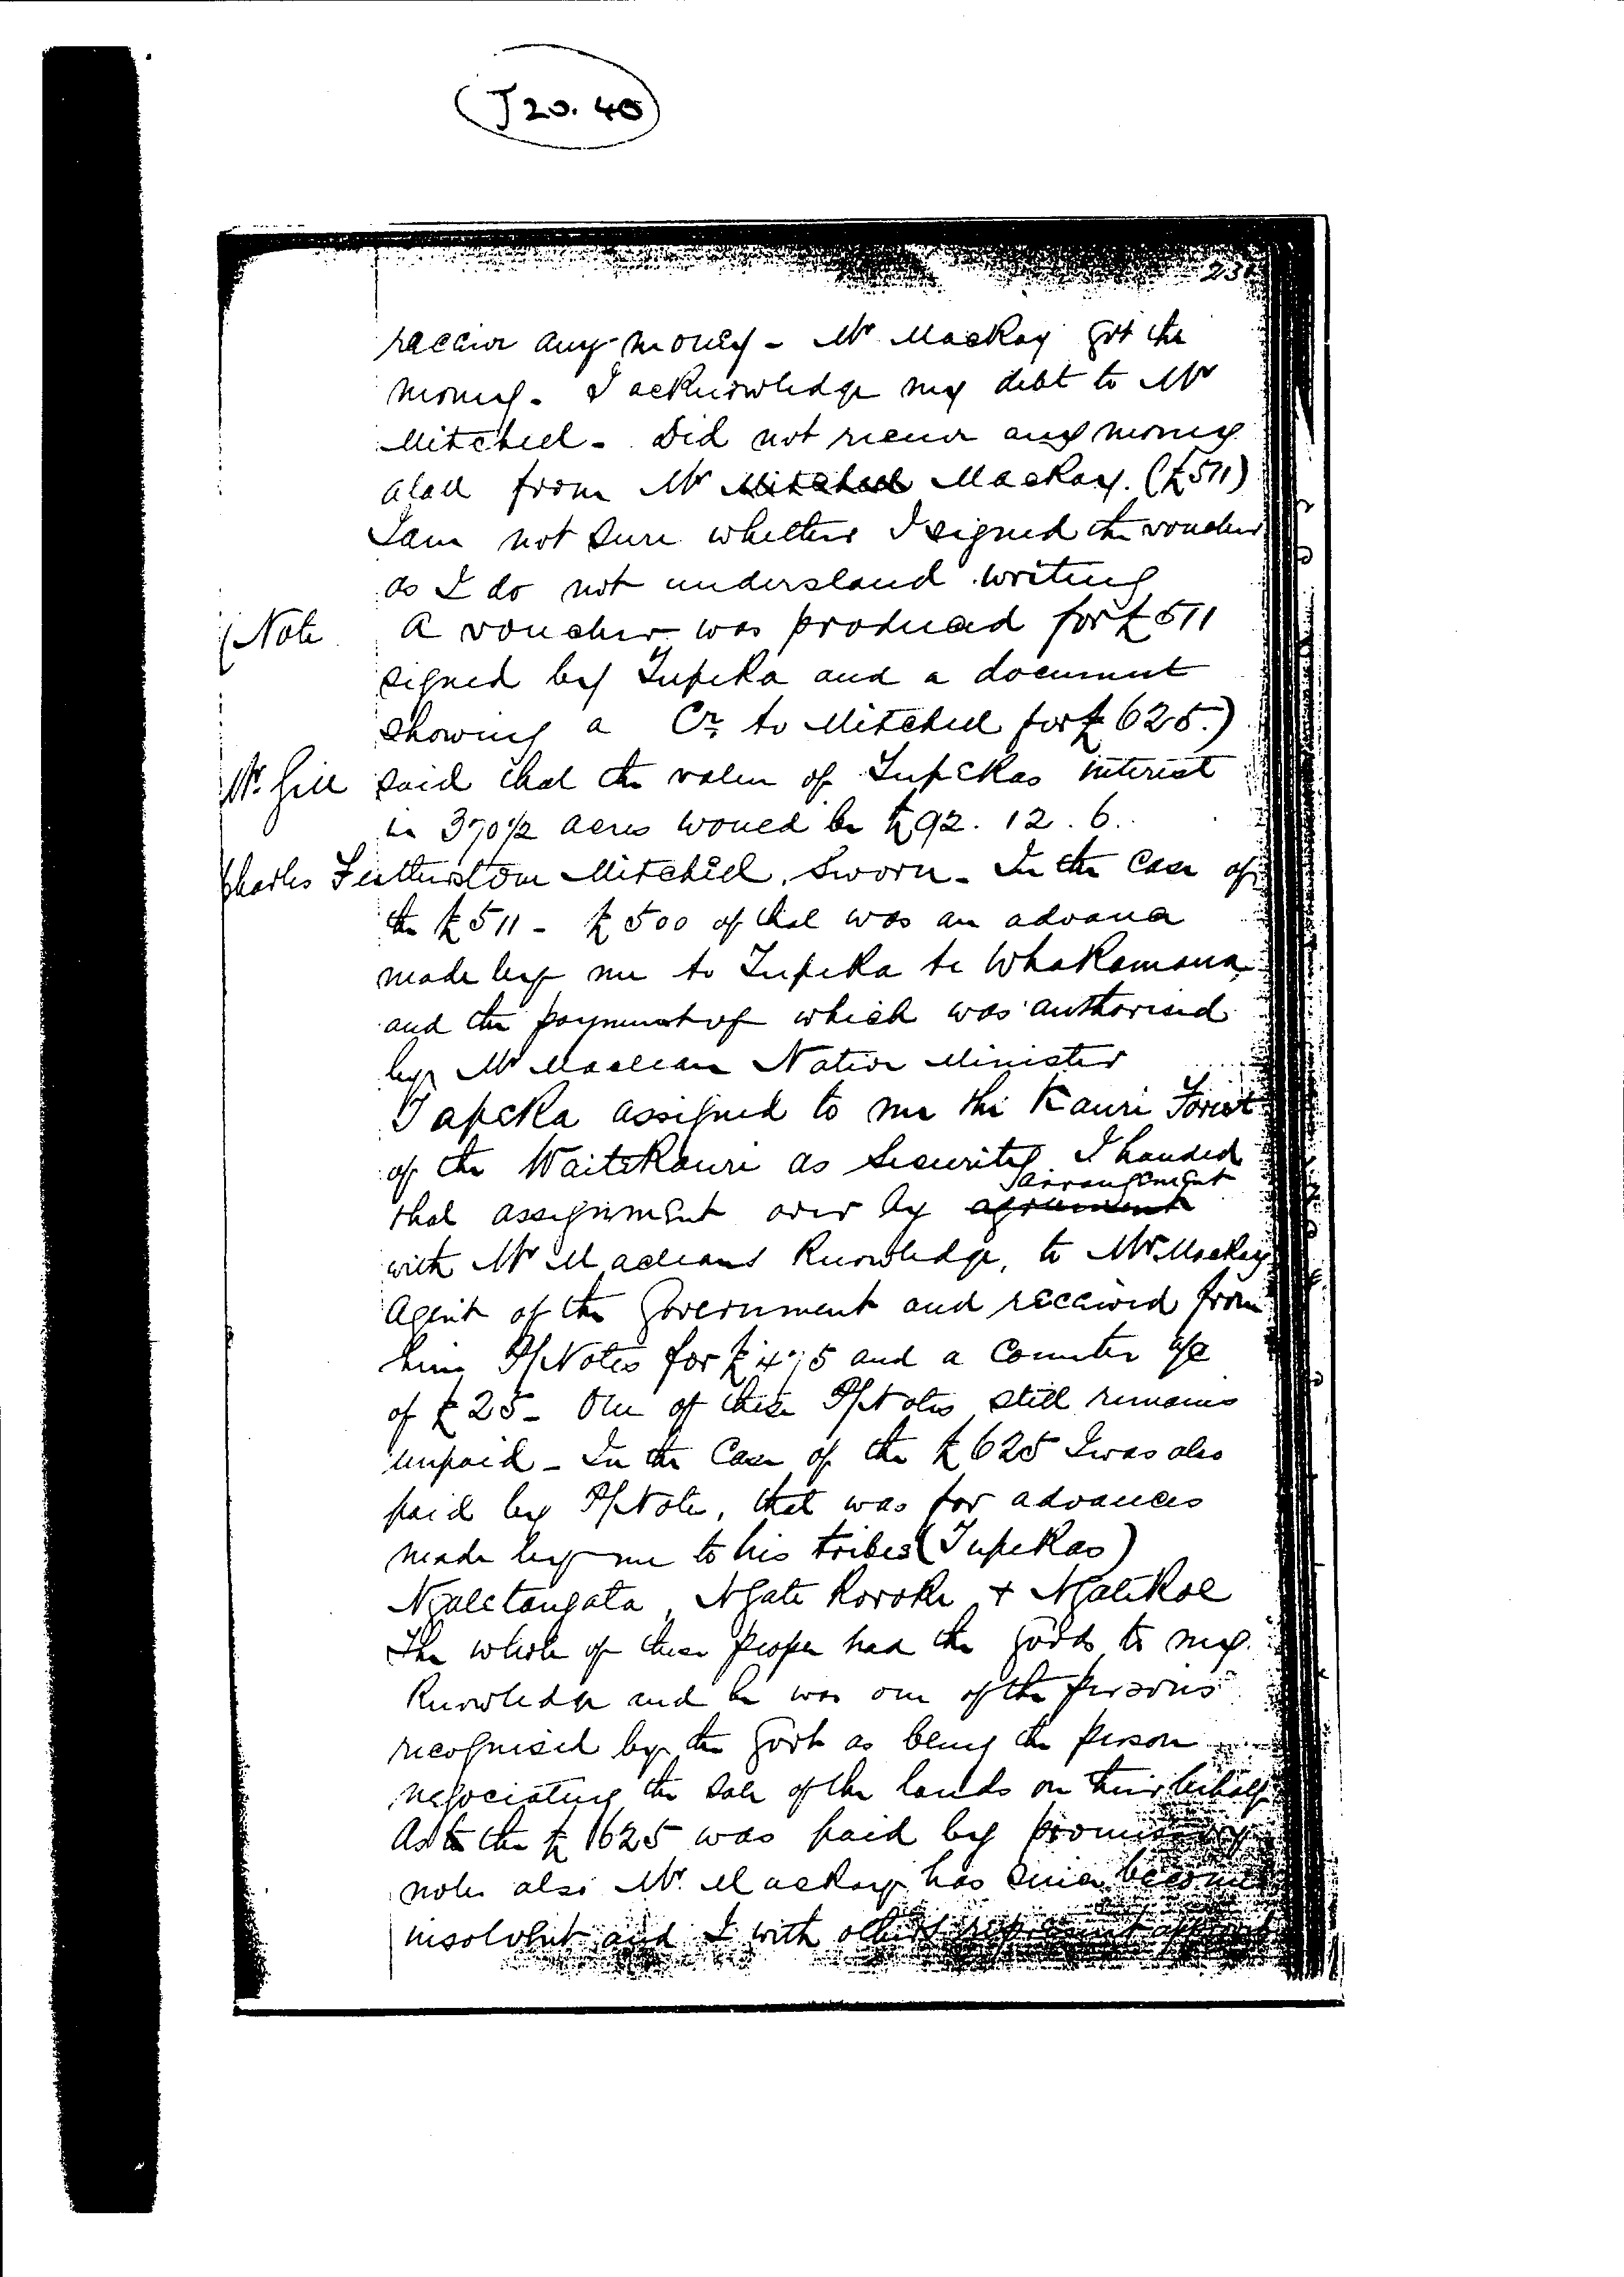 J 20. 40
231
receive any money - Mr MacKay got the
money. I acknowledge my debt to Mr
Mitchell - Did not receive any money
atall from Mr Mitchell MacKay. (£511)
I am not sure whether I signed the voucher
as I do not understand writing
(Note A voucher was produced for £511
signed by Tupeka and a document
showing a Cr to Mitchell for £625.)
Mr Gill said that the value of Tupekas interest
in 370½ acres would be £92. 12. 6.
Charles Featherstone Mitchell, Sworn - In the case of
the £511 - £500 of that was an advance
made by me to Tupeka te Whakamana
and the payment of which was authorised
by Mr Maclean Native Minister
Tapeka assigned to me the Kauri Forest
of the Waitekauri as security I handed
arrangement
that assignment over by agreement
with Mr Macleans Knowledge, to Mr MacKay
Agent of the Government and received from
him P/Notes for £475 and a Counter a/c
of £25 - One of these P/Notes still remains
unpaid - In the Case of the £625 I was also
paid by P/Note, that was for advances
made by me to his tribes (Tupekas)
Ngatetangata, Ngati Koroki + NgatiKoe
The whole of these people had the goods to my
Knowledge and he was one of the persons
recognised by the Govt as being the person
negociating the sale of the lands on their behalf
As to the £625 was paid by promissory
note also Mr. MacKay has since become
insolvent and I with others represent